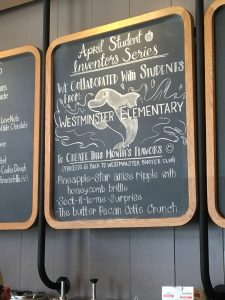 April Student
Inventors Series
We Collaborated With Students
From
Westminster Elementary
To Create This Month's Flavors
(Proceeds Go Back to Westminster Booster Club)
- Pineapple-Star anise ripple with
honeycomb brittle
- Sock-it-to-me-Surprise
- The butter Pecan Coffee Crunch
Love Nuts
White Chocolate
Cookie Dough